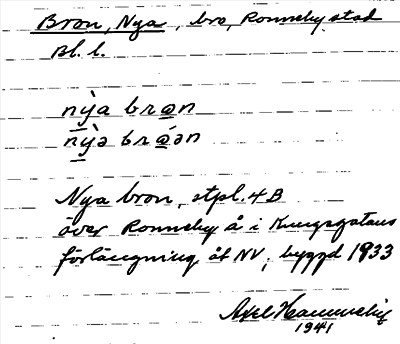 Bron, Nya, bro, Ronneby stad
Bl. l.
nỳa brọn
nỳə brọ́ən
Nya bron, stpl. 4B
över Ronneby å i Kungsgatans
förlängning åt NV, byggd 1933
Axel
1941